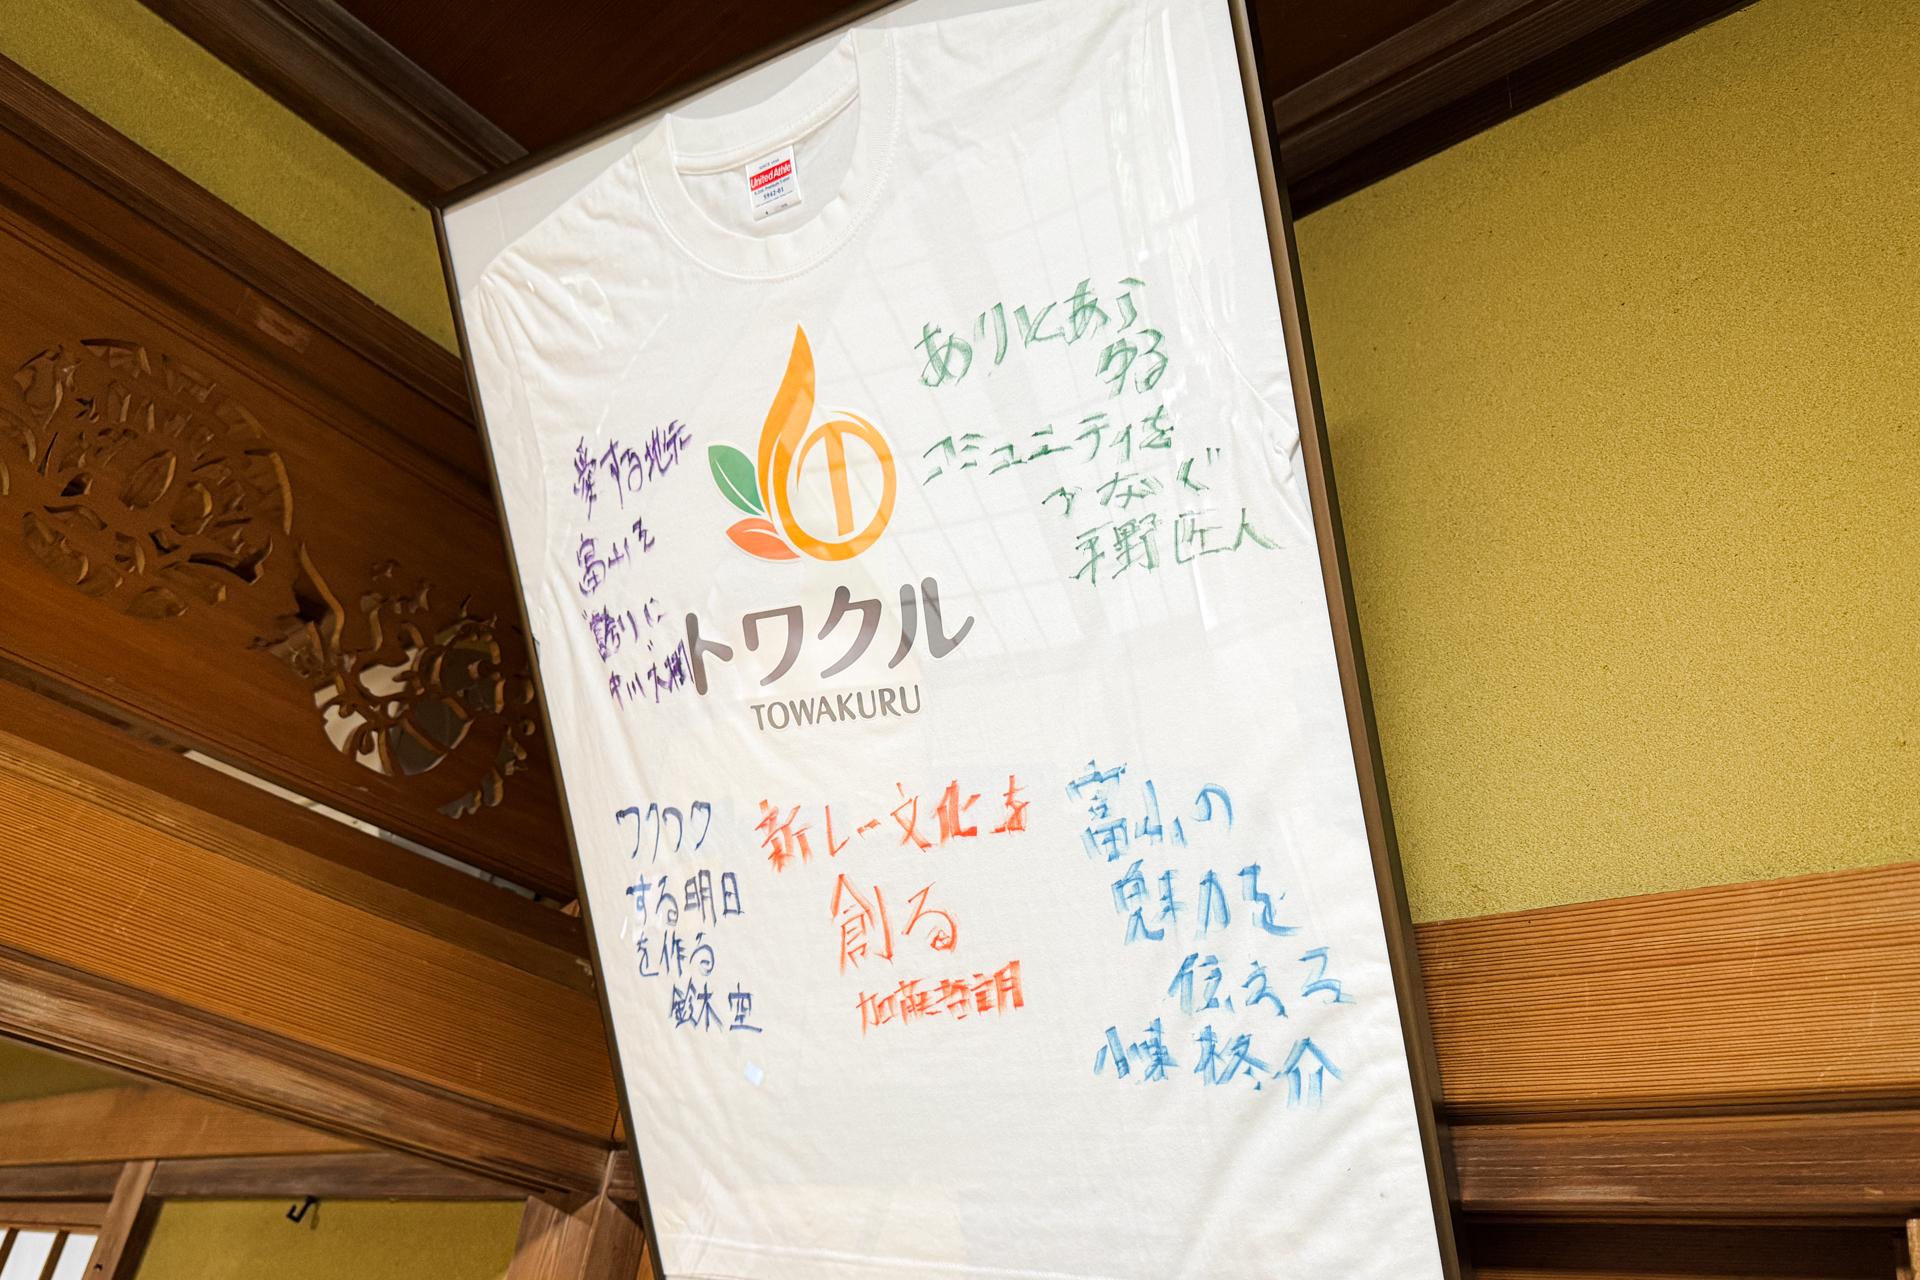 United Athle
5942-01
ありとあら
ゆる
コミュニティを
つなぐ
平野 匠人
愛する地元
富山を
誇りに
中川
トワクル
TOWAKURU
ワクワク
する明日
を作る
鈴木 空
新しい文化を
創る
加藤
富山の
魅力を
伝える
柊介